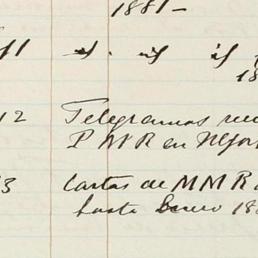 1881-
11 " . " "
18
12 Telegramas
P MR en N York
3 Cartas de MMR
hasta Enero 18